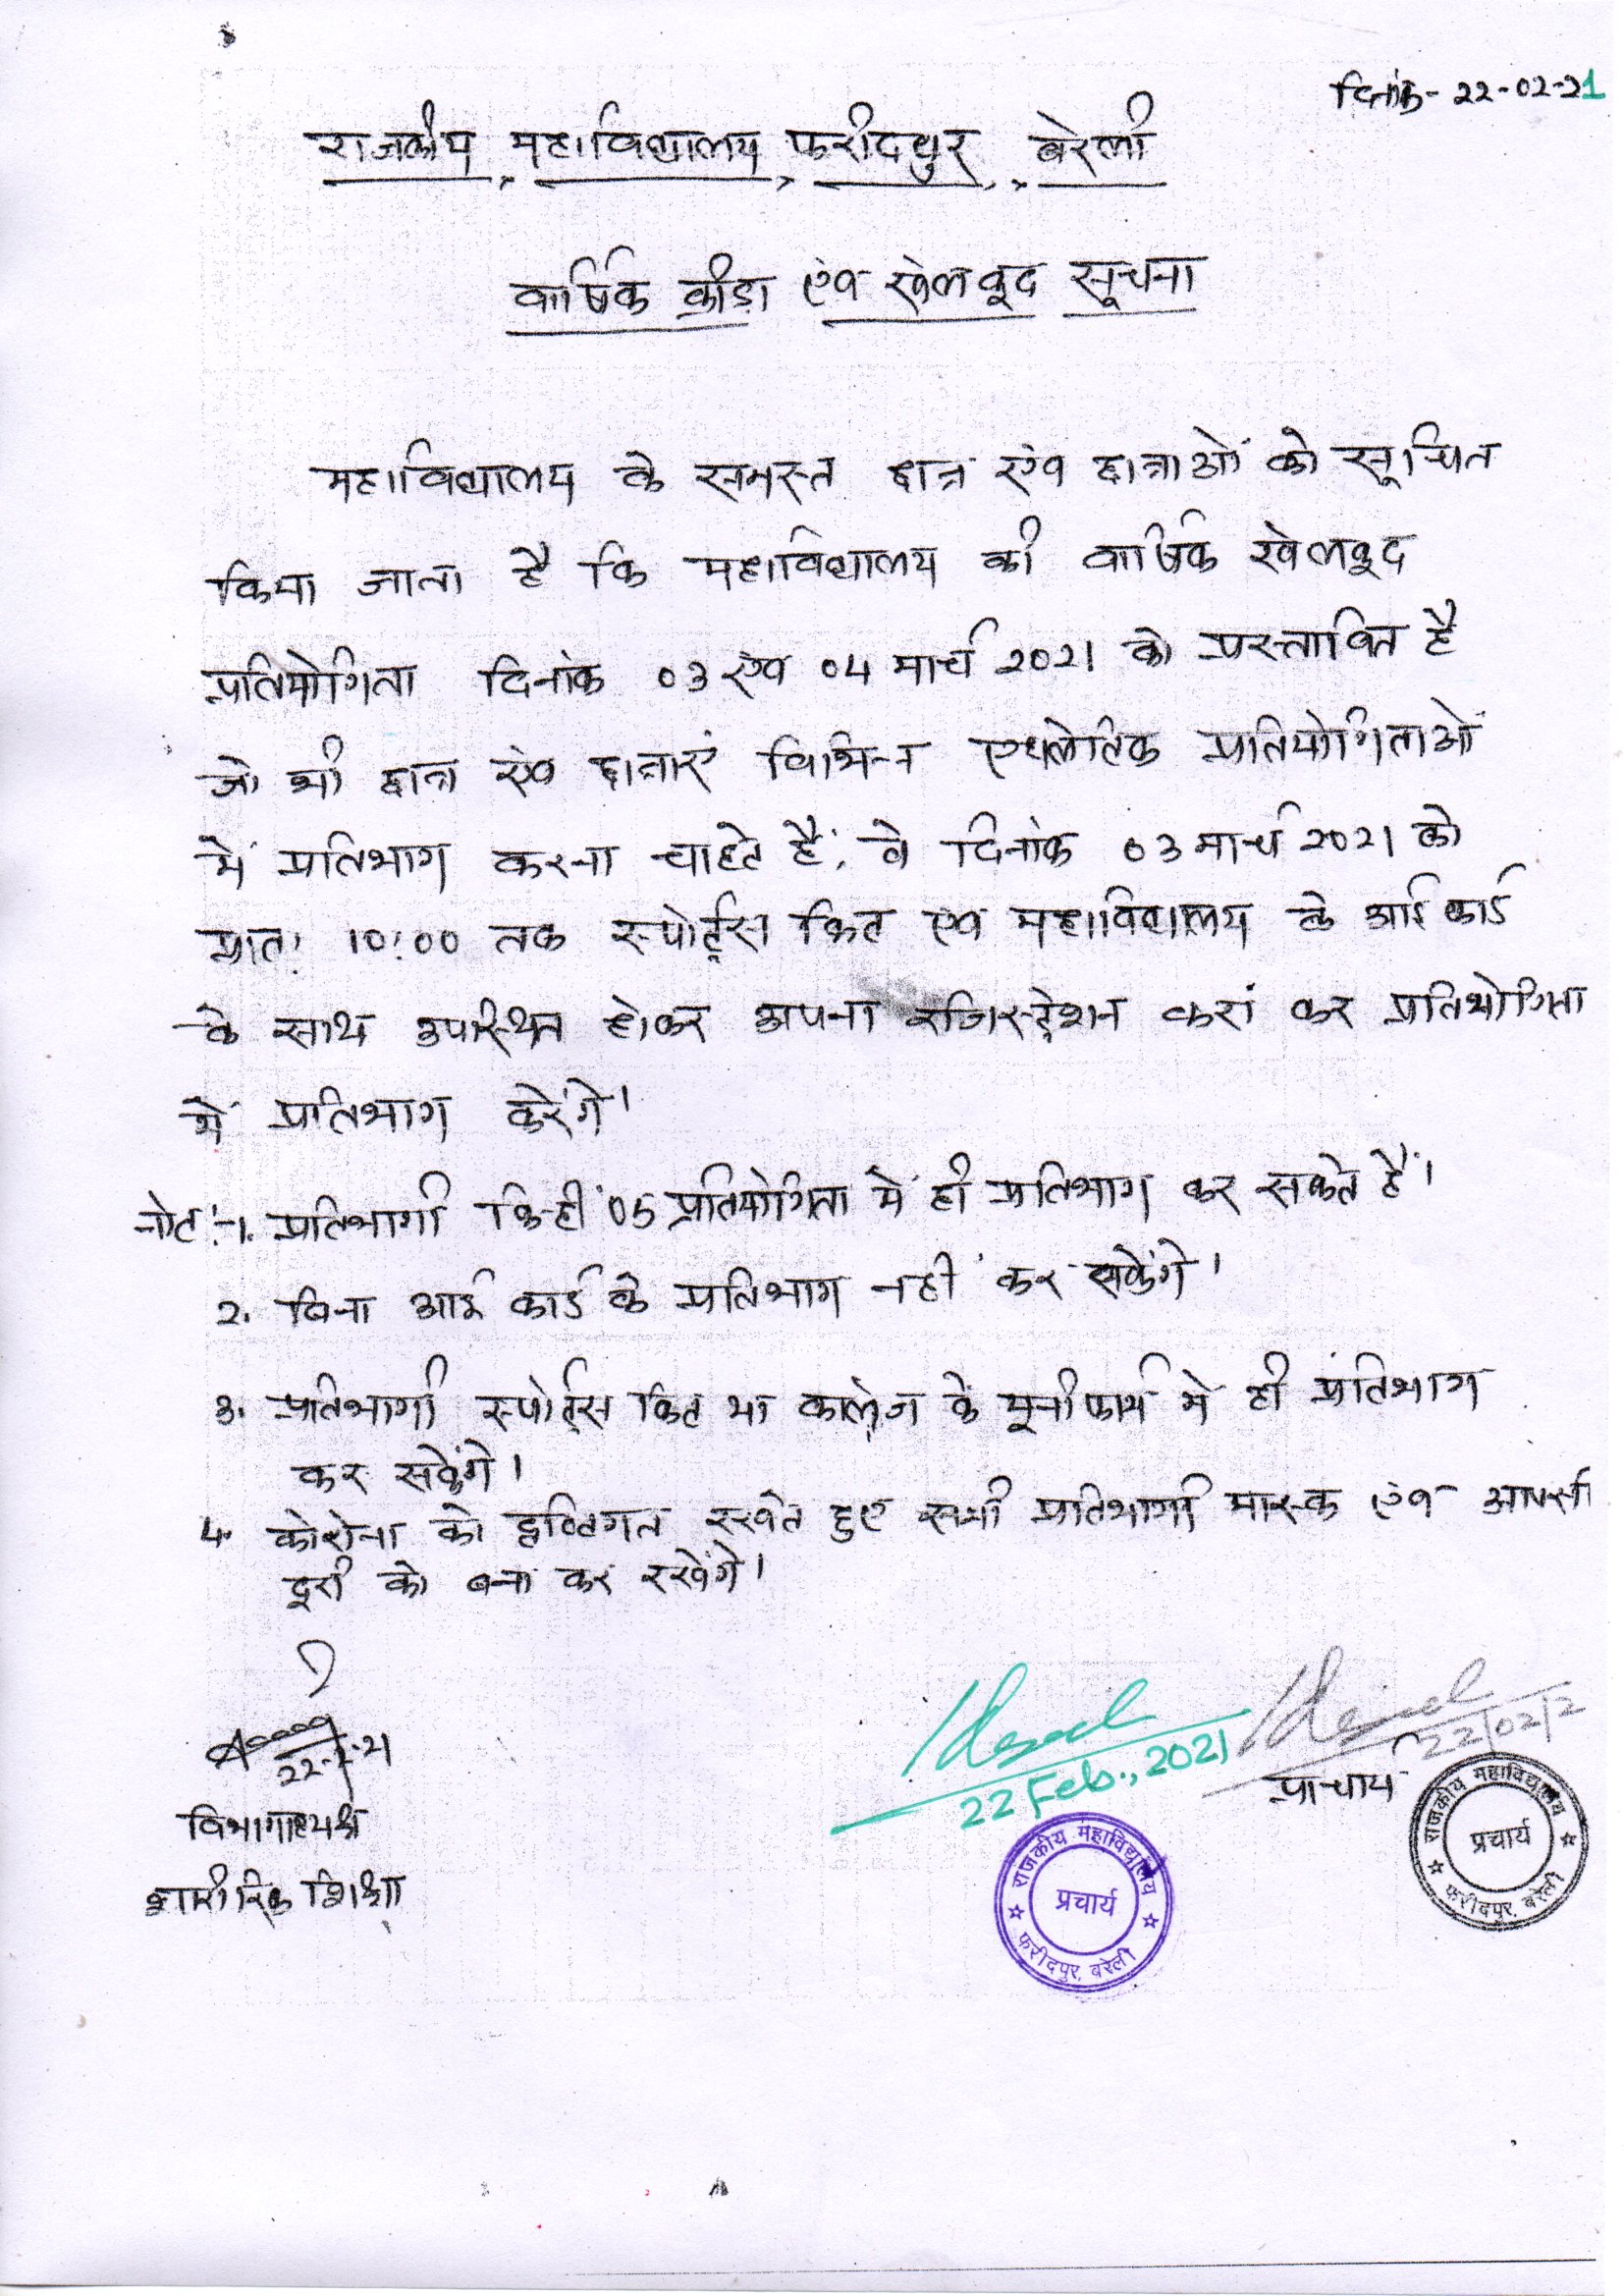 दिनांक- 22-02-21
राजकीय महाविद्यालय, फरीदपुर, बरेली
वार्षिक क्रीड़ा एंव खेलकूद सूचना
महाविद्यालय के समस्त छात्र एंव छात्राओं को सूचित
किया जाता है कि महाविद्यालय की वार्षिक खेलकूद
प्रतियोगिता दिनांक 03 एंव 04 मार्च 2021 को प्रस्तावित है
जो भी छात्र एंव छात्राएं विभिन्न एथलेटिक प्रतियोगिताओं
में प्रतिभाग करना चाहते हैं, वे दिनांक 03 मार्च 2021 को
प्रातः 10:00 तक स्पोर्ट्स किट एंव महाविद्यालय के आई कार्ड
के साथ उपस्थित होकर अपना रजिस्ट्रेशन करां कर प्रतियोगिता
में प्रतिभाग करेंगे।
नोट:-1. प्रतिभागी किन्ही 05 प्रतियोगिता में ही प्रतिभाग कर सकते हैं।
2. बिना आई कार्ड के प्रतिभाग नही कर सकेंगे।
3. प्रतिभागी स्पोर्ट्स किट या कालेज के यूनीफार्म मे ही प्रतिभाग
कर सकेंगे।
4. कोरोना को द्वष्टिगत रखते हुए सभी प्रतिभागी मास्क एंव आपसी
दूरी को बना कर रखेंगे।
22-2-21
विभागाध्यक्ष
शारीरिक शिक्षा
22 Feb., 2021
22/02/2
प्राचार्य
राजकीय महाविद्यालय
प्रचार्य
फरीदपुर, बरेली
राजकीय महाविद्यालय
प्रचार्य
फरीदपुर, बरेली